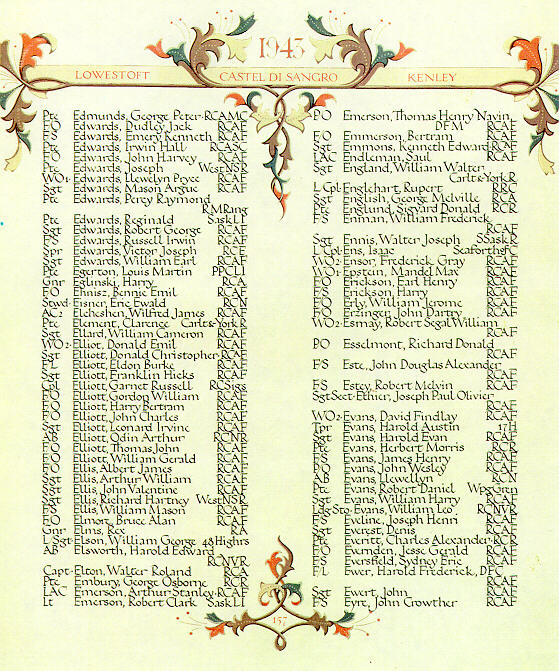 1943
LOWESTOFT CASTEL DI SANGRO KENLEY
Pte Edmunds, George Peter RCAMC
F/O Edwards, Dudley Jack RCAF
F/S Edwards, Emery Kenneth RCAF
Pte Edwards, Irwin Hall RCASC
F/O Edwards, John Harvey RCAF
Pte Edwards, Joseph WestNSR
WO1 Edwards, Llewelyn Pryce RCAF
Sgt Edwards, Mason Argue RCAF
Pte Edwards, Percy Raymond
RMRang
Pte Edwards, Reginald SaskLI
Sgt Edwards, Robert George RCAF
F/S Edwards, Russell Irwin RCAF
Spr Edwards, Victor Joseph RCE
Sgt Edwards, William Earl RCAF
Pte Egerton, Louis Martin PPCLI
Gnr Eglinski, Harry RCA
F/O Ehnisz, Bennie Emil RCAF
Stwd Eisner, Eric Ewald RCN
AC2 Elcheshen, Wilfred James RCAF
Pte Element, Clarence Carlt&YorkR
Sgt Ellard, William Cameron RCAF
WO2 Elliot, Donald Emil RCAF
Sgt Elliott, Donald Christopher RCAF
F/L Elliott, Eldon Burke RCAF
Sgt Elliott, Franklin Hicks RCAF
Cpl Elliott, Garnet Russell RCSigs
F/O Elliott, Gordon William RCAF
F/O Elliott, Harry Bertram RCAF
F/O Elliott, John Charles RCAF
Sgt Elliott, Leonard Irvine RCAF
AB Elliott, Odin Arthur RCNR
F/O Elliott, Thomas John RCAF
F/O Elliott, William Gerald RCAF
F/O Ellis, Albert James RCAF
Sgt Ellis, Arthur William RCAF
Sgt Ellis, John Valentine RCAF
Sgt Ellis, Richard Hartney WestNSR
F/S Ellis, William Mason RCAF
F/O Elmor, Bruce Alan RCAF
Gnr Elms, Rex RA
L Sgt Elson, William George 48Highrs
AB Elsworth, Harold Edward
RCNVR
Capt Elton, Walter Roland RCA
Pte Embury, George Osborne RCR
LAC Emerson, Arthur Stanley RCAF
Lt Emerson, Robert Clark SaskLI
P/O Emerson, Thomas Henry Navin
DFM RCAF
F/O Emmerson, Bertram RCAF
Sgt Emmons, Kenneth Edward RCAF
LAC Endleman, Saul RCAF
Sgt England, William Walter
Carlt&YorkR
L Cpl Englehart, Rupert RRC
Sgt English, George Melville RCA
Pte Englund, Sigvard Donald RCR
F/S Enman, William Frederick
RCAF
Sgt Ennis, Walter Joseph SSaskR
L Cpl Ens, Isaac SeaforthofC
WO2 Ensor, Frederick Gray RCAF
WO1 Epstein, Mandel Max RCAF
F/O Erickson, Earl Henry RCAF
F/S Erickson, Harry RCAF
F/O Erly, William Jerome RCAF
F/O Erzinger, John Dartry RCAF
WO2 Esmay, Robert Segal William
RCAF
P/O Esselmont, Richard Donald
RCAF
F/S Este, John Douglas Alexander
RCAF
F/S Estey, Robert Melvin RCAF
Sgt Sect Ethier, Joseph Paul Olivier
RCAF
WO2 Evans, David Findlay RCAF
Tpr Evans, Harold Austin 17H
Sgt Evans, Harold Evan RCAF
Pte Evans, Herbert Morris RCR
F/S Evans, James Henry RCAF
P/O Evans, John Wesley RCAF
AB Evans, Llewellyn RCN
Pte Evans, Robert Daniel WpgGren
Sgt Evans, William Harry RCAF
Ldg Sto Evans, William Leo RCNVR
F/S Eveline, Joseph Henri RCAF
Sgt Everest, Denis RCAF
Pte Everitt, Charles Alexander RCR
F/O Evernden, Jesse Gerald RCAF
F/S Eversfield, Sydney Eric RCAF
F/L Ewer, Harold Frederick, DFC
RCAF
Sgt Ewert, John RCAF
F/S Eyre, John Crowther RCAF
157